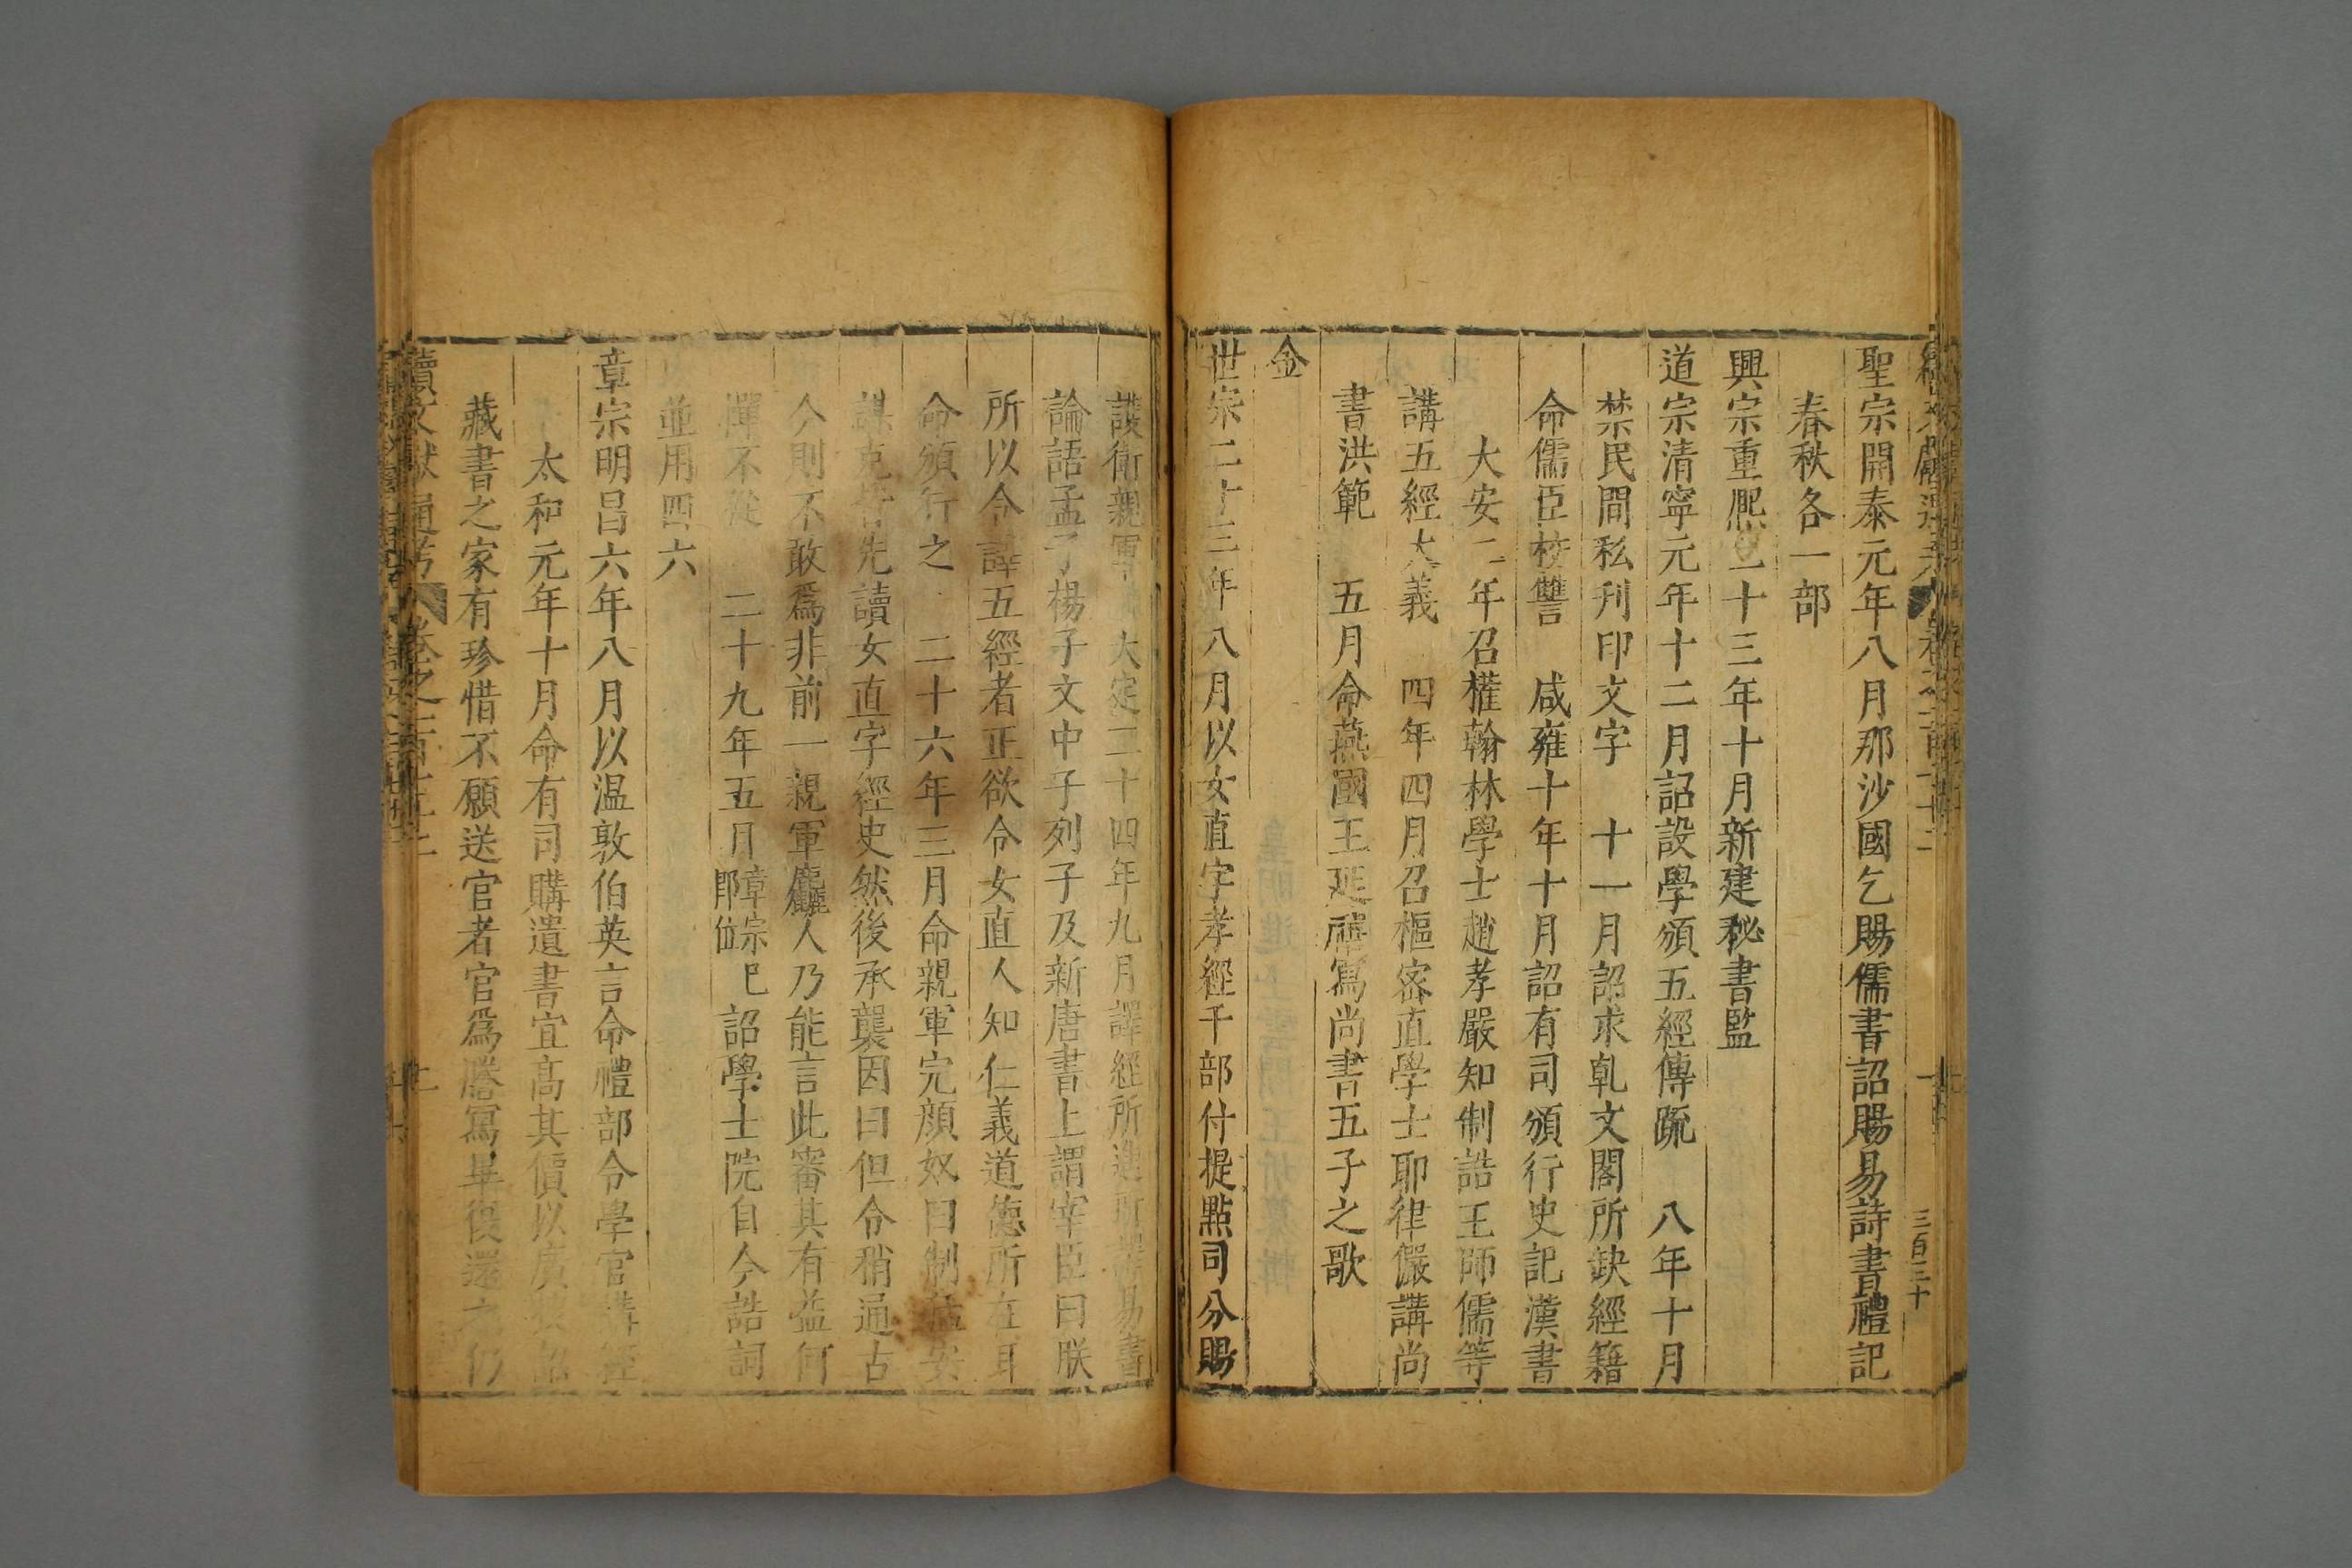 聖宗開泰元年八月那沙國乞賜儒書詔賜易詩書禮記
春秋各一部
興宗重熈二十三年十月新建秘書監
道宗清寧元年十二月詔設學頒五經傳疏 八年十月
禁民間私刊印文字 十一月詔求乹文閣所缺經籍
命儒臣校讐 咸雍十年十月詔有司頒行史記漢書
大安二年召權翰林學士趙孝嚴知制誥王師儒等
講五經大義 四年四月召樞密直學士耶律儼講尚
書洪範 五月命燕國王延禧寫尚書五子之歌
金
世宗二十三年八月以女直字孝經千部付提點司分賜
護衛親軍 大定二十四年九月譯經所進所譯易書
論語孟子楊子文中子列子及新唐書上謂宰臣曰朕
所以令譯五經者正欲令女直人知仁義道德所在耳
命頒行之 二十六年三月命親軍完顔奴曰制猛安
謀克皆先讀女直字經史然後承襲因曰但令稍通古
今則不敢爲非前一親軍麤人乃能言此審其有益何
憚不從 二十九年五月章宗已即位詔學士院自今誥詞
並用四六
章宗明昌六年八月以温敦伯英言命禮部令學官講經
太和元年十月命有司購遺書宜高其價以廣
藏書之家有珍惜不願送官者官爲謄寫畢復還之仍
續文獻通考 卷之
三百三十